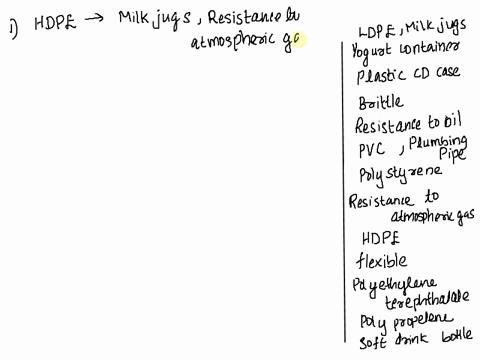 i) HDPE → Milk jugs, Resistance to
atmospheric ga
LDPE, Milk jugs
Yogurt container
Plastic CD case
Brittle
Resistance to oil
PVC, Plumbing
Pipe
Polystyrene
Resistance to
atmospheric gas
HDPE
flexible
Polyethylene
terephthalate
Poly propelene
Soft drink bottle